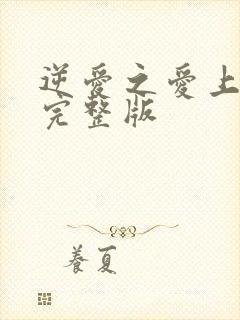 逆愛之愛上
完整版
養夏